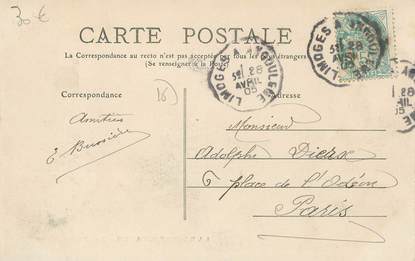 30 €
CARTE POSTALE
La Correspondance au recto n'est pas acceptée par tous les pays étrangers
(Se renseigner à la Poste)
LIMOGES A ANGOULEME
28
AVRIL
05
LIMOGES A ANGOULEME
28
AVRIL
05
28
Correspondance
Adresse
16
Amitiés
E Bussière
Monsieur
Adolphe Dierx
6 place de l'Odéon
Paris